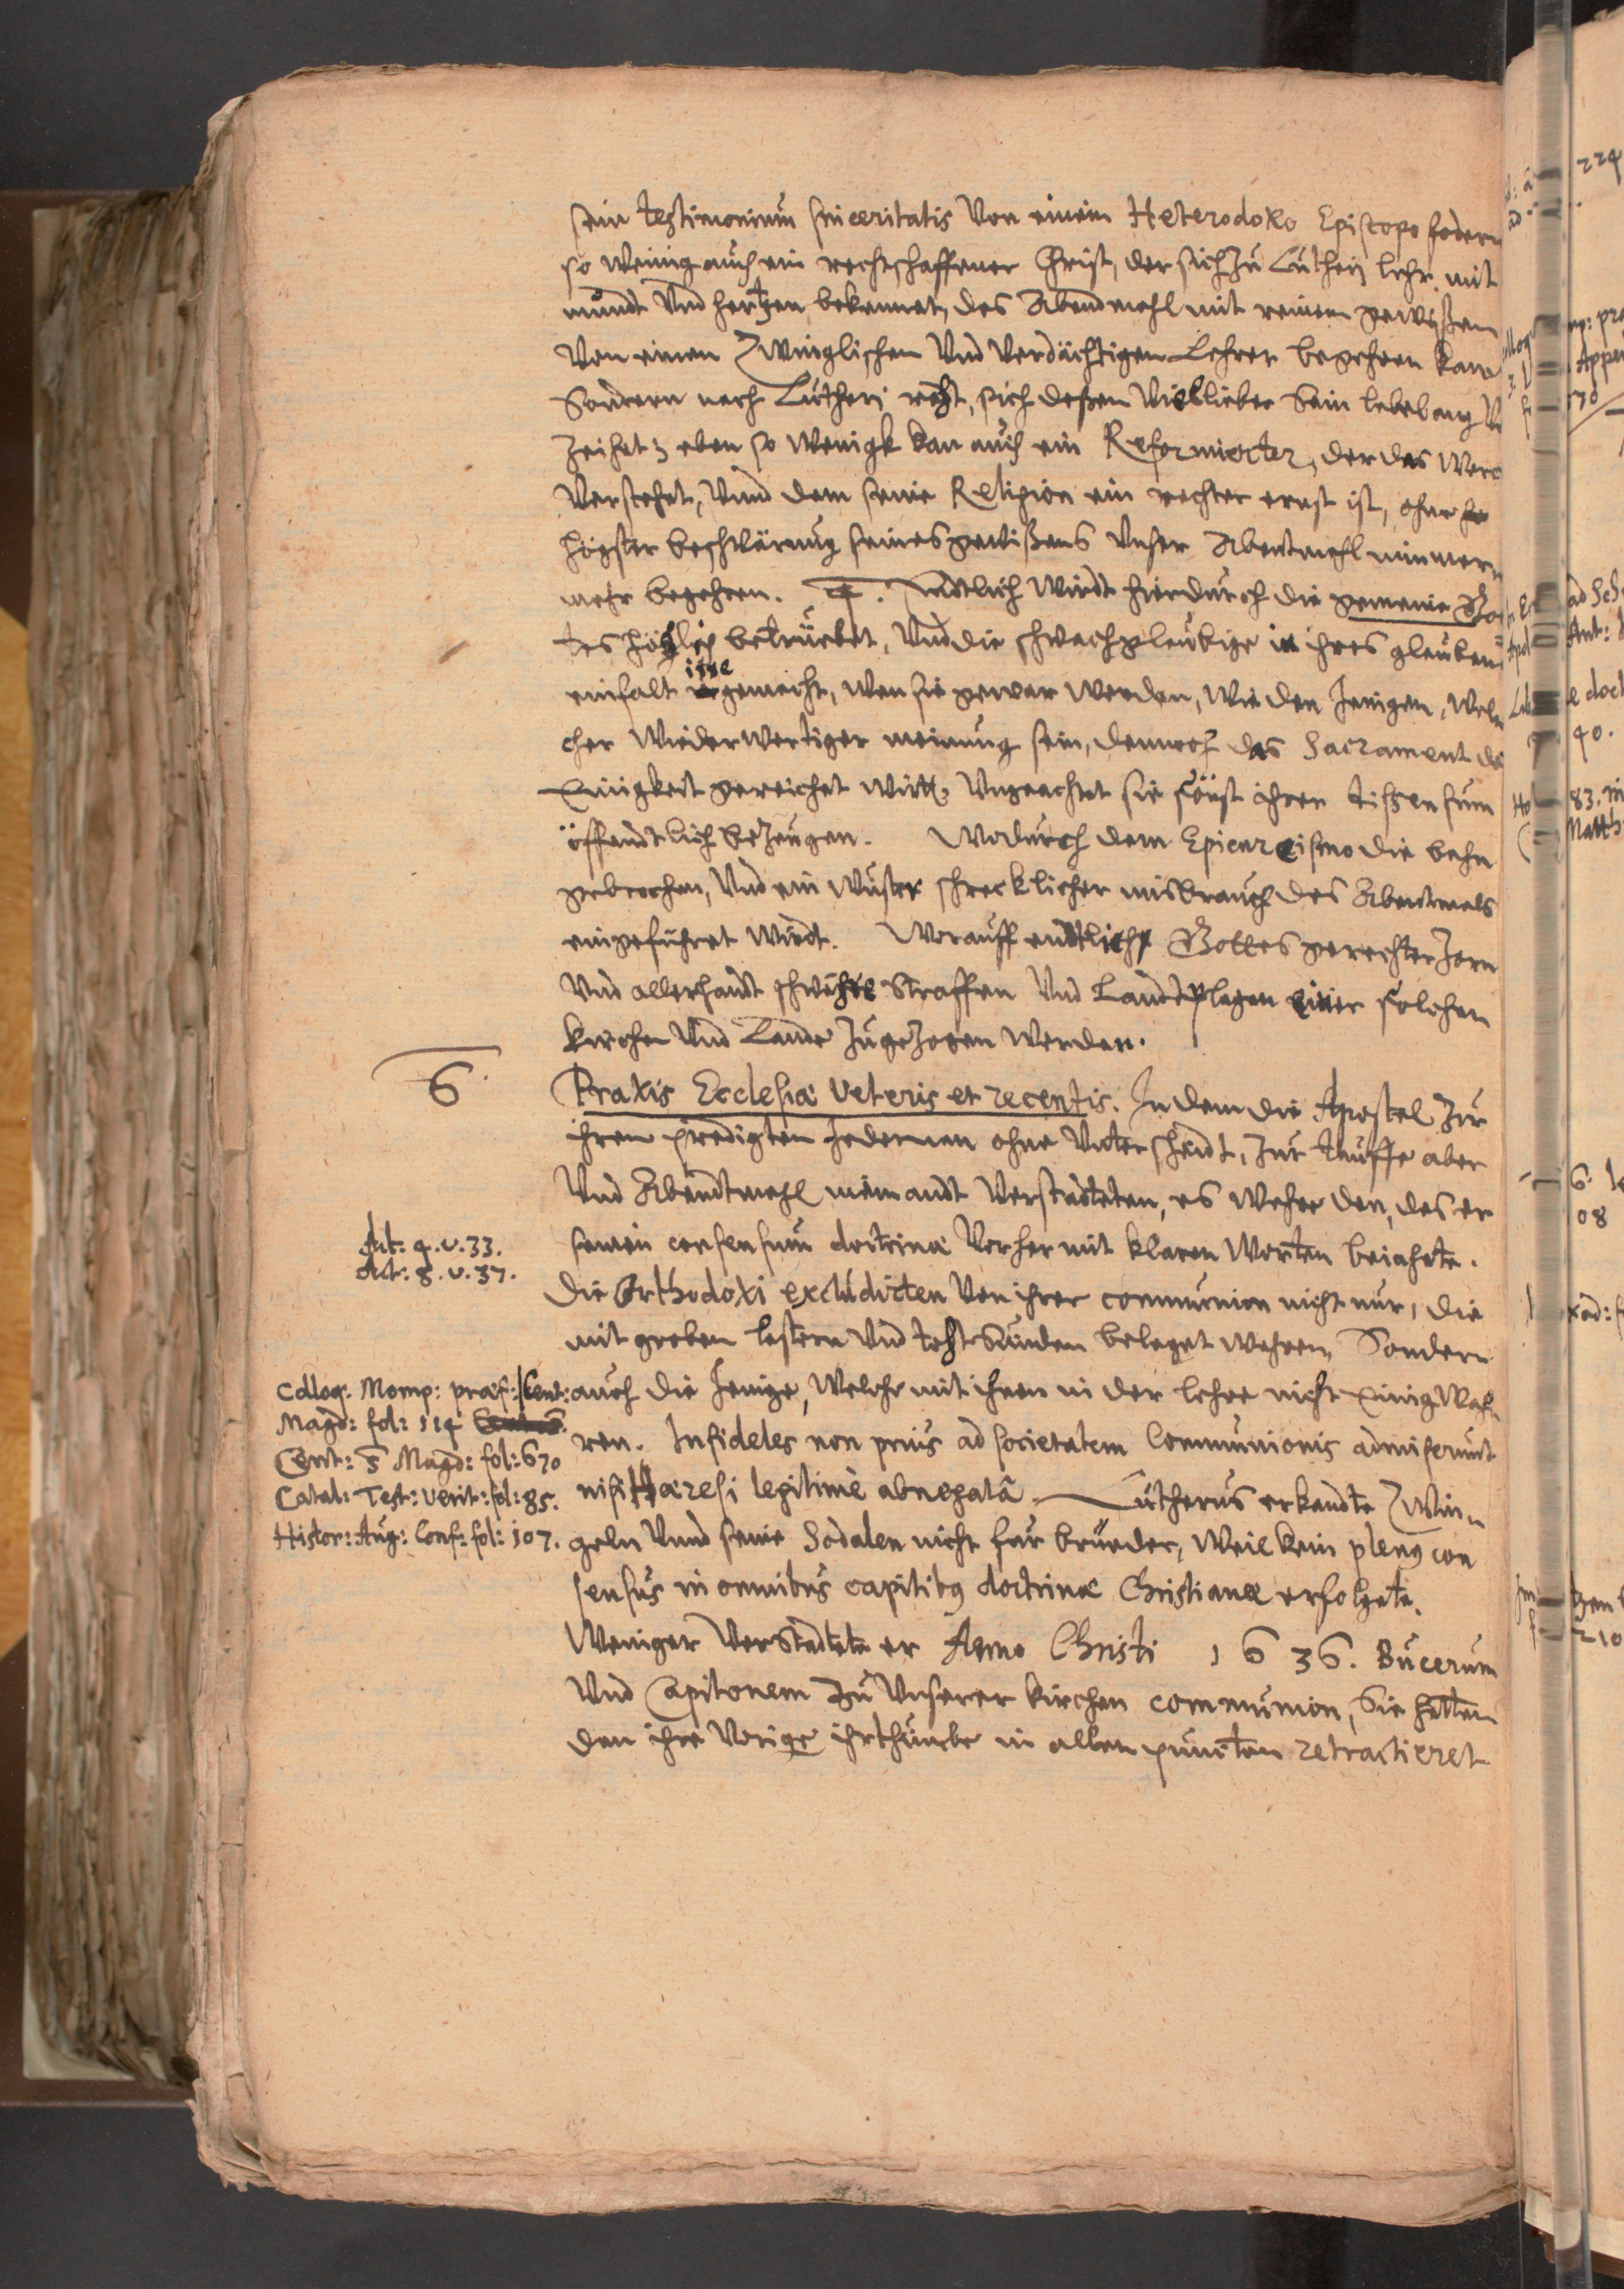 sein testimonium sinceritatis Von einem Heterodoxo Episcopo fodern
so wenig auch ein rechtschaffener Christ, der sich zu Lutherj lehr mit
mundt Vnd hertzen bekennet, das Abendmahl mit reinem gewißen
Von einen Zwinglischen Vnd Verdächtigen Lehrer begehren kan
Sondern nach Lutherj raht, sich deßen Viellieber Sein lebelang
Zeihet; eben so wenigk kan auch ein Reformierter, der das
Verstehet, Vnnd dem seine Religion ein rechter ernst ist, ohne
högster beschwärung seines gewißens Vnser Abentmahl nimmer
mehr begehren. Endtlich wirdt hierdurch die gemeine
höhlich betrüebet, Vnd die schwachgleubige in ihres glauben
einfalt irre gemacht, wen sie gewar werden, wie den Jenigen, wel
cher wiederwertiger meinung sein, dennoch das Sacrament
Einigkeit gereichet wirtt, Vngeachtet sie sönst ihren dissensum
öffendtlich beZeugen. Wodurch dem Epicureismo die bahn
gebrochen, Vnd ein wüster schrecklicher misbrauch des Abentmals
eingeführet wirdt. Worauff endtlich Gottes gerechter Zorn
Vnd allerhandt schwehre Straffen Vnd Landtplagen einer solchen
kirchen Vnd Lande zugeZogen werden.
6. Praxis Ecclesiæ Veteris et recentis. Indem die Apostel Zur
ihren predigten Jederman ohne Vnterscheidt, Zur tauffe aber
Vnd Abendtmahl niemandt Verstadteten, es wehre den, das er
Act: 4. v. 33.
Act: 8. v. 37.
seinen consensum doctrinæ Vorher mit klaren worten beiahete.
Die Orthodoxi excludirten Von ihrer communion nicht nur, die
mit groben lastern Vnd todtsünden beleget wahren, Sondern
Colloq: Momp: præf: Cent:
Magd: fol: 114
Cent: 5 Magd: fol: 670
Catal: Test: verit: fol: 85.
Histor: Aug: Conf: fol: 107.
auch die Jenige, welche mit ihnen in der lehre nicht Einig wah-
ren. Infideles non prius ad societatem Communionis admiserunt
nisi Hæresi legitimè abnegatâ. Lutherus erkandte Zwin-
geln Vnnd seine Sodalen nicht für brüeder, weil kein plenus con
sensus in omnibus capitibus doctrinæ Christianæ erfolgete.
Weniger Verstadtete er Anno Christi 1636. Bucerum
Vnd Capitonem Zu Vnserer kirchen communion, Sie hetten
den ihre Vorige ihrthumbe in allen puncten retractieret